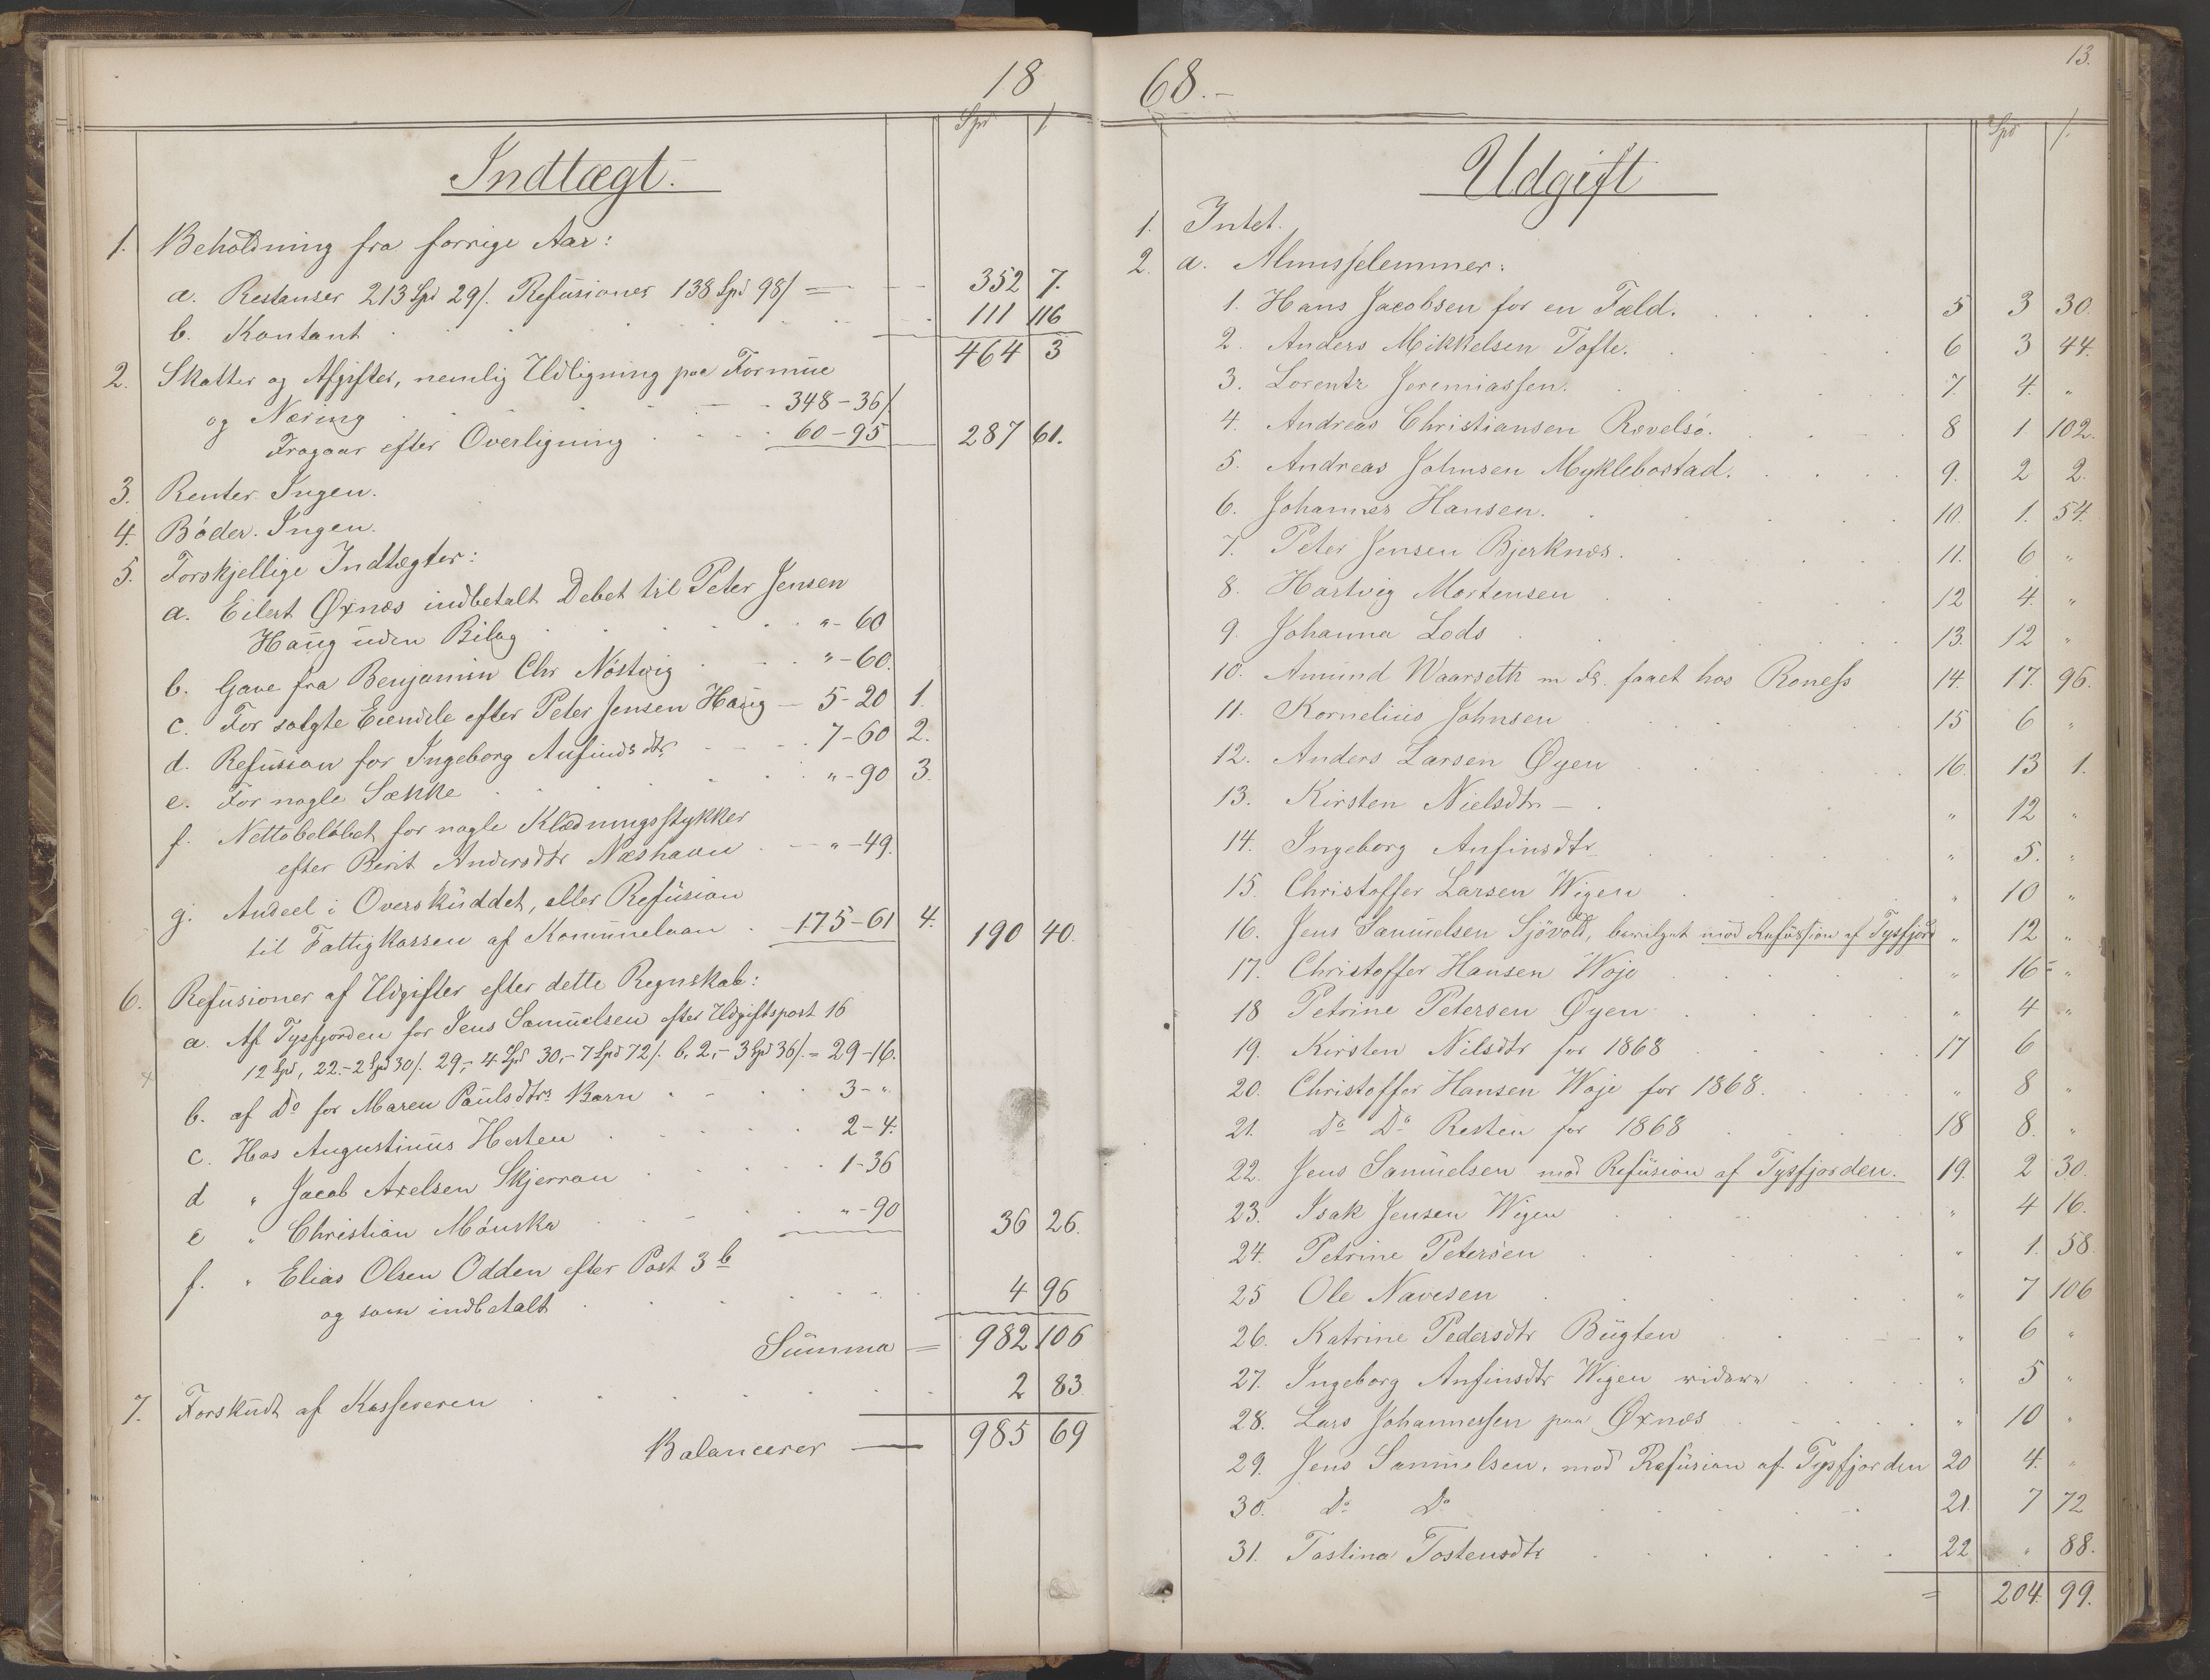 18
Spd /.
Indtægt.
1. Beholdning fra forrige Aar:
a. Restanser 213 Spd 29/. Refusioner 138 Spd 98/ = 352 7.
b. Kontant 111 116
464 3
2. Skatter og Afgifter, nemlig Udligning paa Formue
og Næring 348-36/.
Fragaar efter Overligning 60-95 287 61.
3. Renter. Ingen.
4. Bøder. Ingen.
5. Forskjellige Indtægter:
a. Eilert Øxnæs indbetalt Debet til Peter Jensen
Haug uden Bilag "-60
b. Gave fra Benjamin Chr Nøstvig "-60.
c. For solgte Eiendele efter Peter Jensen Haug - 5-20 1.
d. Refusion for Ingeborg Anfindsdtr 7-60 2.
e. For nogle Sække "-90 3.
f. Nettobeløbet for nogle Klædningsstykker
efter Berit Andersdtr Næshaun "-49.
g. Andeel i Overskuddet, eller Refusion
til Fattigkassen af Kommunelaan 175-61 4. 190 40.
6. Refusioner af Udgifter efter dette Regnskab:
a. Af Tysfjorden for Jens Samuelsen efter Udgiftspost 16
12 Spd, 22.-2 Spd 30/. 29,- 4 Spd 30,- 7 Spd 72/. b, 2,- 3 Spd 36/. = 29-16.
b. af Do for Maren Paulsdtrs Barn 3-"
c. Hos Augustinus Hesten 2-4.
d " Jacob Axelsen Skjerran 1-36
e " Christian Mønska "-90 36 26.
f. " Elias Olsen Odden efter Post 3 b
og som indbetalt 4 96
Summa = 982 106
7. Forskudt af Kassereren 2 83
Balancerer - 985 69
68.-
13.
Spd /.
Udgift
1. Intet.
2. a. Almisselemmer:
1. Hans Jacobsen for en Fæld. 5 3 30.
2. Anders Mikkelsen Tofte. 6 3 44.
3. Lorentz Jeremiassen. 7. 4. "
4. Andreas Christiansen Rævelsø. 8 1 102.
5. Andreas Johnsen Myklebostad. 9. 2 2.
6. Johannes Hansen. 10. 1. 54.
7. Peter Jensen Bjerknæs. 11. 6 "
8. Hartvig Mortensen 12 4. "
9. Johanna Lods 13. 12 "
10. Amund Waarseth m fl. faaet hos Roness 14. 17. 96.
11. Kornelius Johnsen 15 6 "
12. Anders Larsen Øyen 16. 13 1.
13. Kirsten Nielsdtr - " 12 "
14. Ingeborg Anfinsdtr " 5. "
15. Christoffer Larsen Wigen " 10 "
16. Jens Samuelsen Sjövold, bevilget mod Refusion af Tysfjord " 12 "
17. Christoffer Hansen Woje " 16 "
18 Petrine Petersen Øyen " 4 "
19. Kirsten Nilsdtr for 1868 17 6
20. Christoffer Hansen Woje for 1868. " 8 "
21. Do Do Resten for 1868 18 8. "
22. Jens Samuelsen mod Refusion af Tysfjorden. 19. 2 30.
23. Isak Jensen Wigen " 4 16.
24. Petrine Petersen " 1. 58
25 Ole Navesen " 7 106
26. Katrine Pedersdtr Bugten " 6 "
27. Ingeborg Anfinsdtr Wigen " 5 "
28. Lars Johannessen paa Øxnæs " 10 "
29. Jens Samuelsen. mod Refusion af Tysfjorden 20 4. "
30. Do Do 21. 7 72
31. Tostina Tostensdtr 22 " 88.
= 204. 99.